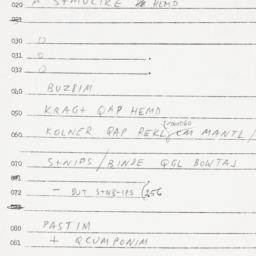 020 STMULIKE HEMD
030 0
031 0
032 0
040 BUZBIM
050 KRAGT QAP HEMD
060 KOLNER QAP REKL MANTL /
070 STNIPS / BINDE QGL BOWTAJ
072 - BUT STNB-IPS (256
080 PASTIM
081 + QCUMPONIM